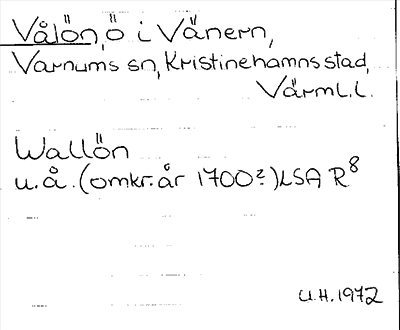 Vålön, ö i Vänern,
Varnums sn, Kristinehamns stad,
Värml. l.
Wallön
u. å. (omkr. år 1700?) LSA R8
U.H. 1972